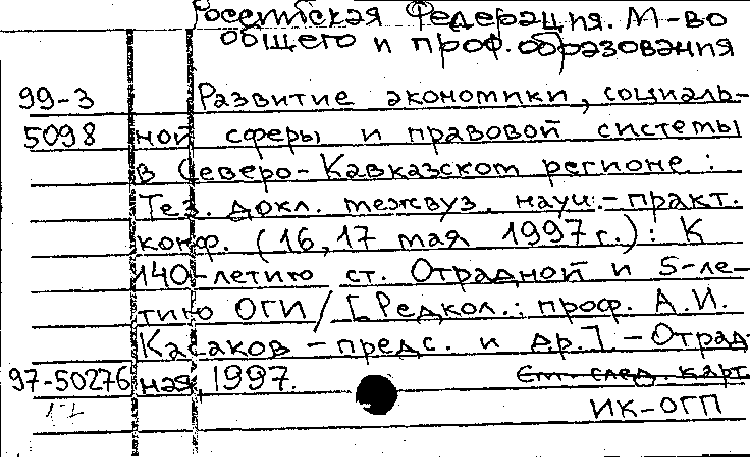 Российская Федерация. М-во
общего и проф. образования
99-3 Развитие экономики, социаль-
5098 ной сферы и правовой системы
в Северо-Кавказском регионе :
Тез. докл. межвуз. науч.-практ.
конф. (16, 17 мая 1997 г.) : К
140-летию ст. Отрадной и 5-ле-
тию ОГИ / [Редкол.: проф. А.И.
Касаков - предс. и др.]. - Отрад-
97-50276 ная, 1997. См. след. карт.
17 ИК-ОГП